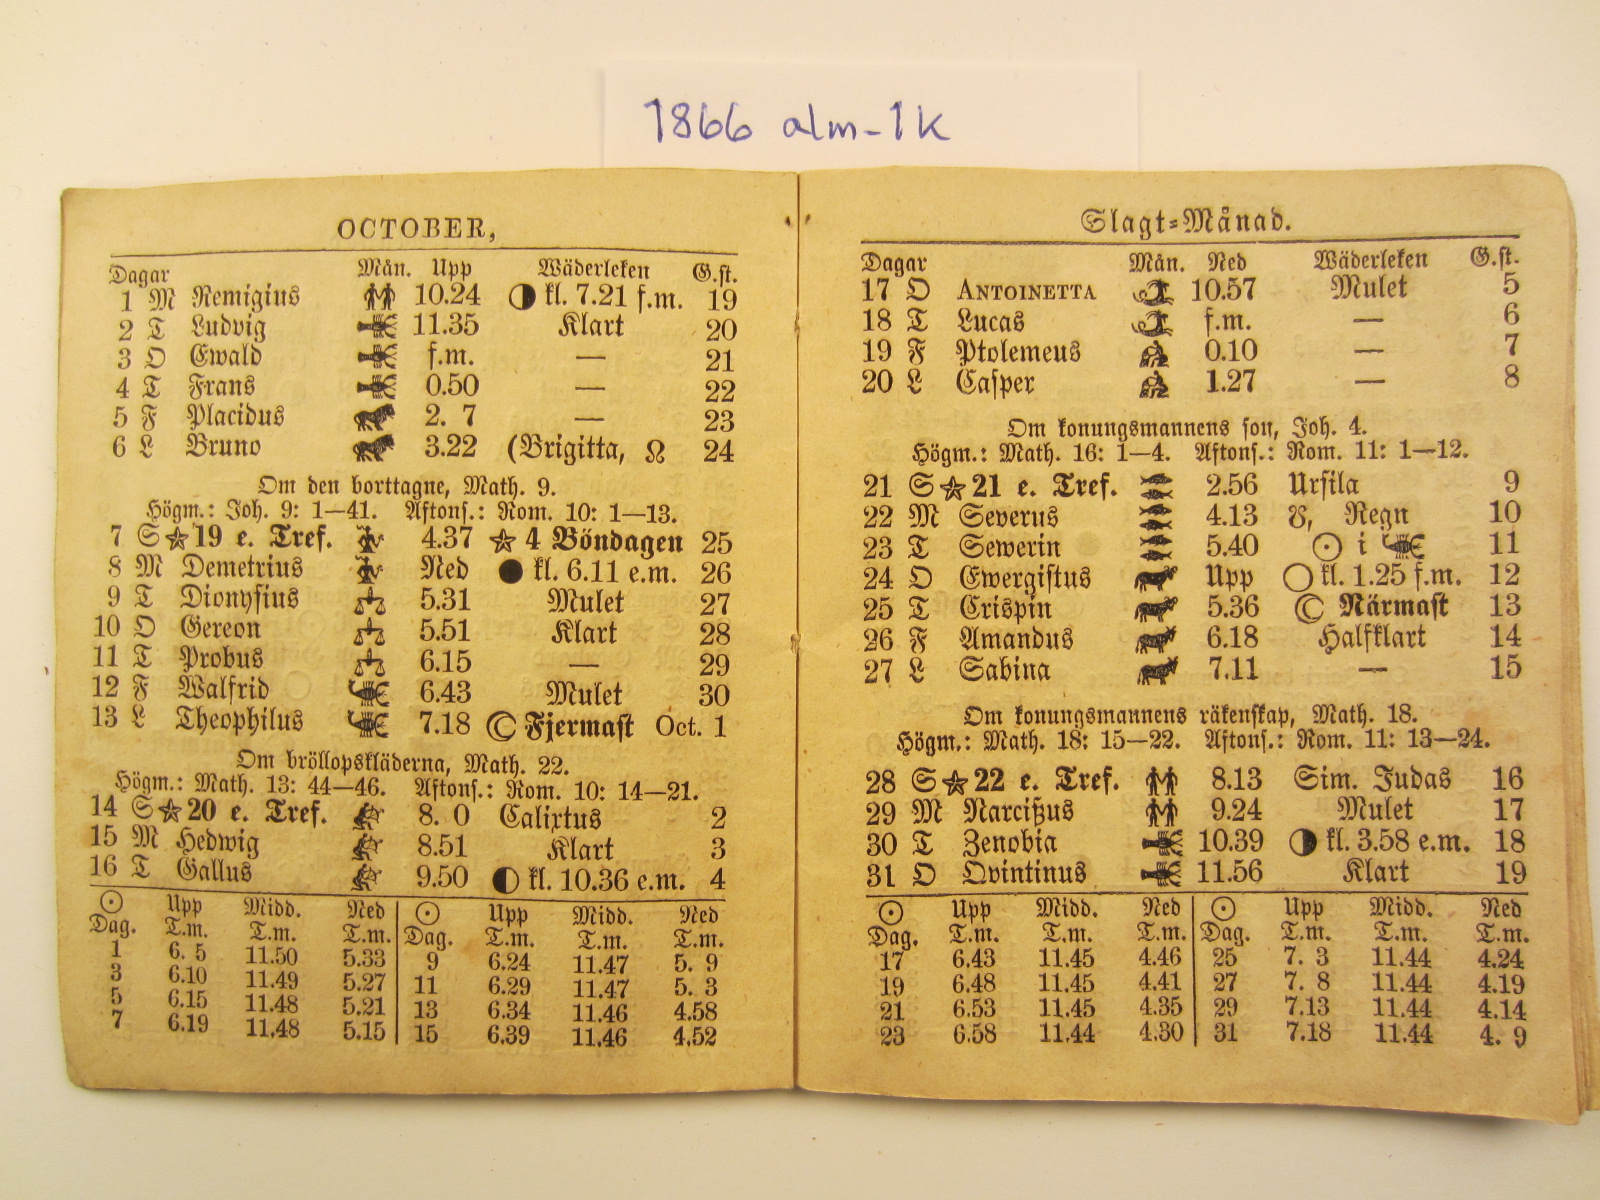 1866 alm-1k
OCTOBER,
Dagar Mån. Upp Wäderleken G.st.
1 M Remigius 10.24 kl. 7.21 f.m. 19
2 T Ludvig 11.35 Klart 20
3 O Ewald f.m. — 21
4 T Frans 0.50 — 22
5 F Placidus 2. 7 — 23
6 L Bruno 3.22 (Brigitta, ☊ 24
Om den borttagne, Math. 9.
Högm.: Joh. 9: 1—41. Aftons.: Rom. 10: 1—13.
7 S ☆ 19 e. Tref. 4.37 ☆ 4 Böndagen 25
8 M Demetrius Ned ● kl. 6.11 e.m. 26
9 T Dionysius 5.31 Mulet 27
10 O Gereon 5.51 Klart 28
11 T Probus 6.15 — 29
12 F Walfrid 6.43 Mulet 30
13 L Theophilus 7.18 ☾ Fjermast Oct. 1
Om bröllopskläderna, Math. 22.
Högm.: Math. 13: 44—46. Aftons.: Rom. 10: 14—21.
14 S ☆ 20 e. Tref. 8. 0 Calixtus 2
15 M Hedwig 8.51 Klart 3
16 T Gallus 9.50 kl. 10.36 e.m. 4
☉ Upp Midd. Ned ☉ Upp Midd. Ned
Dag. T.m. T.m. T.m. Dag. T.m. T.m. T.m.
1 6. 5 11.50 5.33 9 6.24 11.47 5. 9
3 6.10 11.49 5.27 11 6.29 11.47 5. 3
5 6.15 11.48 5.21 13 6.34 11.46 4.58
7 6.19 11.48 5.15 15 6.39 11.46 4.52
Slagt-Månad.
Dagar Mån. Ned Wäderleken G.st.
17 O ANTOINETTA 10.57 Mulet 5
18 T Lucas f.m. — 6
19 F Ptolemeus 0.10 — 7
20 L Casper 1.27 — 8
Om konungsmannens son, Joh. 4.
Högm.: Math. 16: 1—4. Aftons.: Rom. 11: 1—12.
21 S ☆ 21 e. Tref. 2.56 Ursila 9
22 M Severus 4.13 ☋, Regn 10
23 T Sewerin 5.40 ☉ i ♏ 11
24 O Ewergistus Upp ○ kl. 1.25 f.m. 12
25 T Crispin 5.36 ☾ Närmast 13
26 F Amandus 6.18 Halfklart 14
27 L Sabina 7.11 — 15
Om konungsmannens räkenskap, Math. 18.
Högm.: Math. 18: 15—22. Aftons.: Rom. 11: 13—24.
28 S ☆ 22 e. Tref. 8.13 Sim. Judas 16
29 M Narcißus 9.24 Mulet 17
30 T Zenobia 10.39 kl. 3.58 e.m. 18
31 O Qvintinus 11.56 Klart 19
☉ Upp Midd. Ned ☉ Upp Midd. Ned
Dag. T.m. T.m. T.m. Dag. T.m. T.m. T.m.
17 6.43 11.45 4.46 25 7. 3 11.44 4.24
19 6.48 11.45 4.41 27 7. 8 11.44 4.19
21 6.53 11.45 4.35 29 7.13 11.44 4.14
23 6.58 11.44 4.30 31 7.18 11.44 4. 9